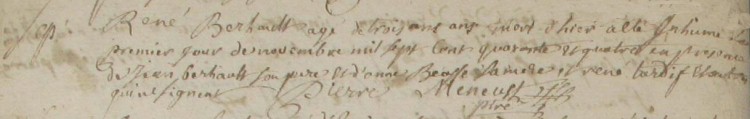 René Berhault agé de trois ans ans mort d'hier a été Inhumé le
premier jour de novembre mil sept cent quarante et quatre en presence
de Jean berhault son pere et d'anne Beasse sa mere et rené tardif et autres
qui ne signent Pierre Meneust
ptre